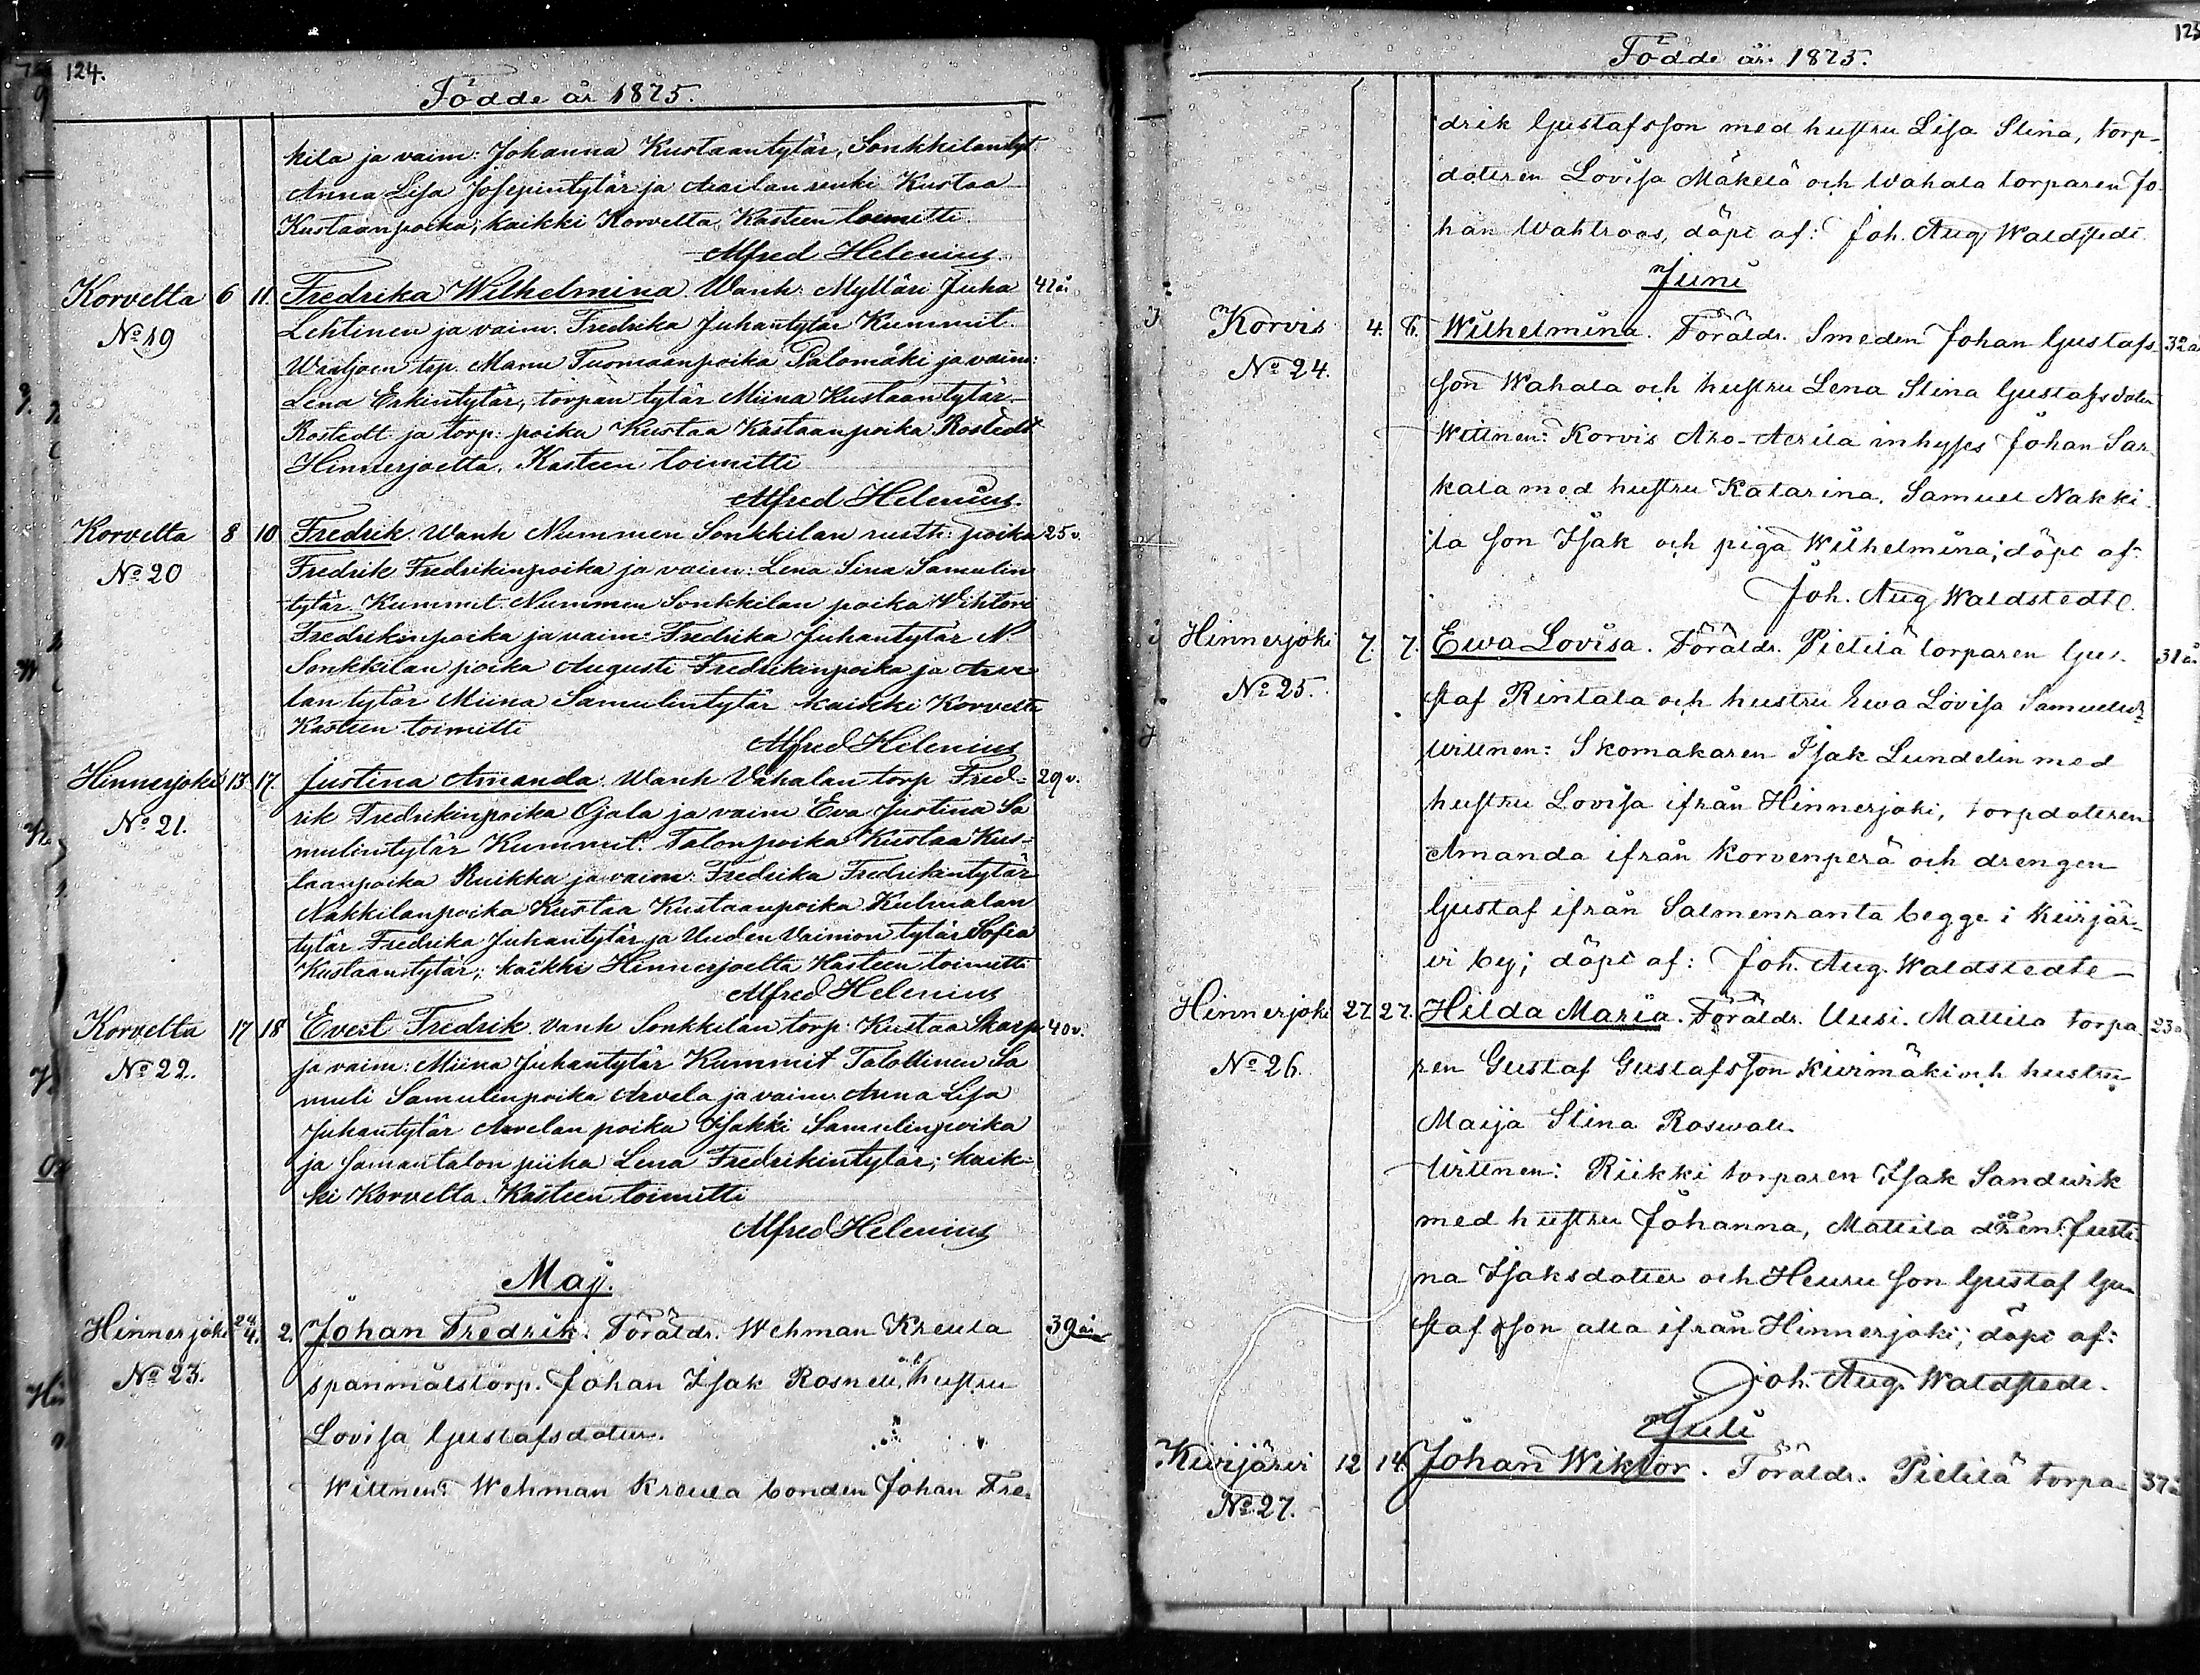 124.
Födde år 1875.
kila ja vaim: Johanna Kustaantytär, Sonkkilan tyt.
Anna Lisa Josepintytär ja renki Kustaa
Kustaanpoika, kaikki Korvelta, Kasteen toimitti
Alfred Helenius.
Korvelta 6 11. Fredrika Wilhelmina. Wanh: Mylläri Juha 41 år
No 19 Lehtinen ja vaim. Fredrika Juhantytär Kummit.
torp. Manu Tuomaanpoika Palomäki ja vaim:
Lena Erkintytär, torpan tytär Miina Kustaantytär
Rostedt ja torp: poika Kustaa Kustaanpoika Rostedt
Hinnerjoelta. Kasteen toimitti
Alfred Helenius.
Korvelta 8 10 Fredrik. Wanh Nummen Sonkkilan rusth: poika 25 v.
No 20 Fredrik Fredrikinpoika ja vaim: Lena Sina Samulin
tytär. Kummit. Nummen Sonkkilan poika Vihtori
Fredrikinpoika ja vaim: Fredrika Juhantytär N
Sonkkilan poika Augusti Fredrikinpoika ja Arve
lan tytär Miina Samulintytär kaikki Korvelta
Kasteen toimitti
Alfred Helenius
Hinnerjoki 13 17. Justina Amanda. Wanh Vahalan torp Fred- 29 v.
No 21. rik Fredrikinpoika Ojala ja vaim Eva Justina Sa
mulintytär Kummit. Talonpoika Kustaa Kus-
taanpoika Ruikka ja vaim: Fredrika Fredrikintytär
Nakkilanpoika Kustaa Kustaanpoika Kulmalan
tytär Fredrika Juhantytär ja Uuden Vainion tytär Sofia
Kustaantytär; kaikki Hinnerjoelta Kasteen toimitti
Alfred Helenius
Korvelta 17 18 Evert Fredrik. Vanh Sonkkilan torp: Kustaa Skarp 40 v.
No 22. ja vaim: Miina Juhantytär Kummit Talollinen Sa
muli Samulinpoika Arvela ja vaim Anna Lisa
Juhantytär Arvelan poika Isakki Samulinpoika
ja saman talon piika Lena Fredrikintytär; kaik-
ki Korvelta. Kasteen toimitti
Alfred Helenius
Maj.
Hinnerjoki 29/4. 2. Johan Fredrik. Föräldr. Wehman Kreula 39 år
No 23. spanmålstorp. Johan Isak Rosnell, hustru
Lovisa Gustafsdotter.
Wittnen: Wehman Kreula bonden Johan Fre-
125
Födde år 1875.
drik Gustafsson med hustru Lisa Stina, torp-
dottren Lovisa Mäkelä och Wahala torparen Jo-
han Wahlroos, döpt af: Joh. Aug. Waldstedt.
Juni
Korvis 4. 6. Wilhelmina. Föräldr. Smeden Johan Gustafs- 32 å
No 24. son Wahala och hustru Lena Stina Gustafsdotter
Wittnen: Korvis Aro-Aerila inhyses Johan Sar-
kala med hustru Katarina. Samuel Nakki-
la son Isak och piga Wilhelmina; döpt af:
Joh. Aug. Waldstedt.
Hinnerjoki 7. 7. Ewa Lovisa. Föräldr. Pietilä torparen Gu- 31 å
No 25. staf Rintala och hustru Ewa Lovisa Samuelsdr
Wittnen: Skomakaren Isak Lundelin med
hustru Lovisa ifrån Hinnerjoki, torpdottren
Amanda ifrån Korvenperä och drengen
Gustaf ifrån Salmenranta begge i Kuirjär-
vi by; döpt af: Joh. Aug. Waldstedt
Hinnerjoki 27 27. Hilda Maria. Föräldr. Uusi. Mattila torpa- 23 å
No 26. ren Gustaf Gustafsson Kivimäki och hustru
Maija Stina Roswall.
Wittnen: Riikki torparen Isak Sandwik
med hustru Johanna, Mattila Justi-
na Isaksdotter och Heuru son Gustaf Gu-
stafsson alla ifrån Hinnerjoki; döpt af:
Joh. Aug. Waldstedt.
Juli
Kuirjärvi 12 14. Johan Wiktor. Föräldr. Pietilä torpa- 37 å
No 27.